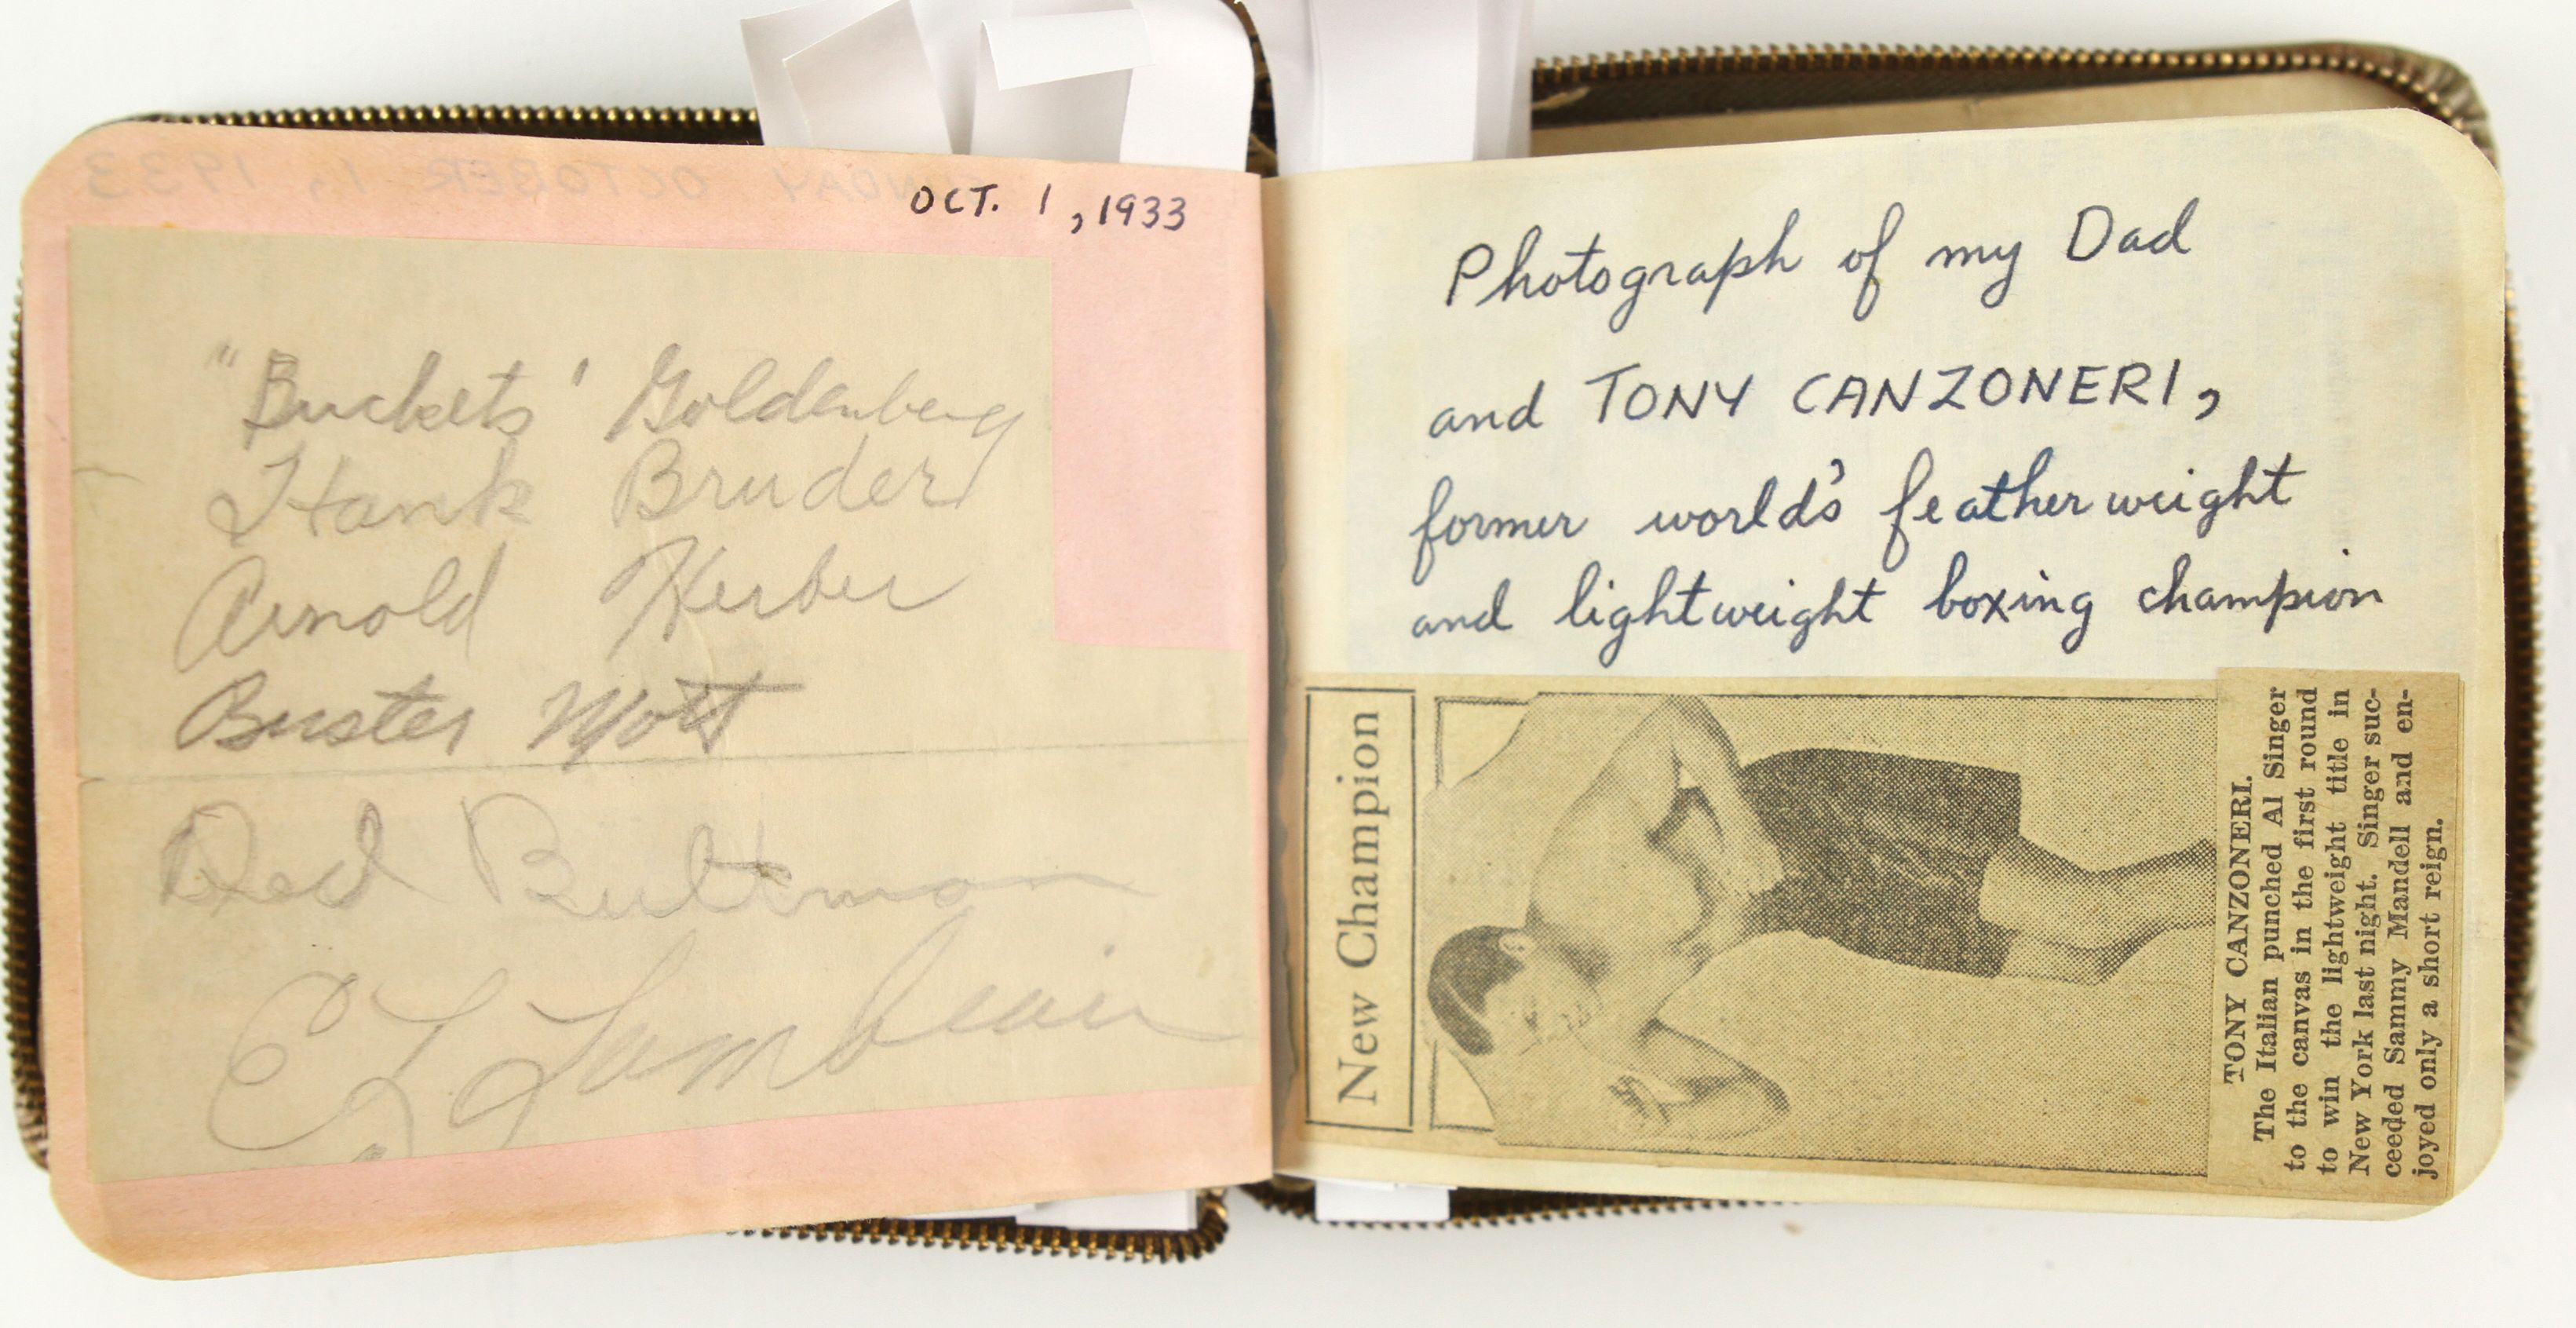 OCT. 1, 1933
"Buckets' Goldenberg
Hank Bruder
Arnold Herber
Buster Mott
Red Bultman
E L Lambeau
Photograph of my Dad
and TONY CANZONERI,
former world's featherweight
and lightweight boxing champion
New Champion
TONY CANZONERI.
The Italian punched Al Singer
to the canvas in the first round
to win the lightweight title in
New York last night. Singer suc-
ceeded Sammy Mandell and en-
joyed only a short reign.
SUNDAY OCTOBER 1, 1933